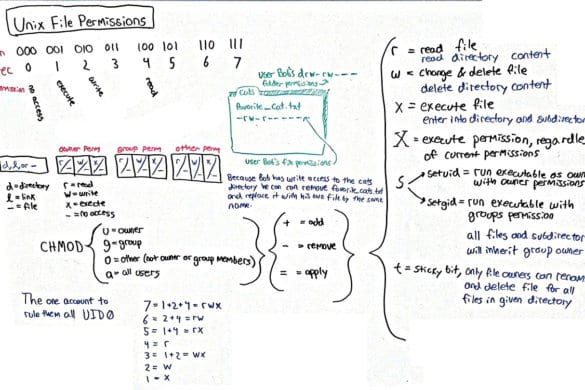 Unix File Permissions
000 001 010 011 100 101 110 111
0 1 2 3 4 5 6 7
no access
execute
write
read
owner perm group perm other perm
d, l, or -
r/- w/- x/- r/- w/- x/- r/- w/- x/-
d = directory
l = link
- = file
r = read
w = write
x = execte
- = no access
user Bob's drw-rw----
folder permissions
Cats
favorite_cat.txt
-rw-r------
user Bob's file permissions
Because Bob has write access to the cats
directory he can can remove favorite_cats.txt
and replace it with his own file by the same
name.
CHMOD
u = owner
g = group
o = other (not owner or group members)
a = all users
+ = add
- = remove
= = apply
The one account to
rule them all UID0
7 = 1+2+4 = rwx
6 = 2+4 = rw
5 = 1+4 = rx
4 = r
3 = 1+2 = wx
2 = w
1 = x
r = read file
read directory content
w = change & delete file
delete directory content
x = execute file
enter into directory and subdirector
X = execute permission, regardle
of current permissions
s
setuid = run executable as own
with owner permissions
setgid = run executable with
groups permission
all files and subdirector
will inherit group owner
t = sticky bit, only file owners can renam
and delete file for all
files in given directory